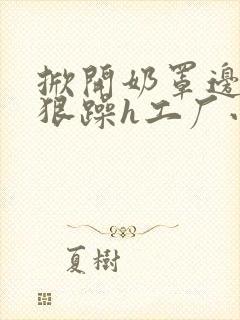 掀開奶罩邊
狠躁h工厂
夏樹